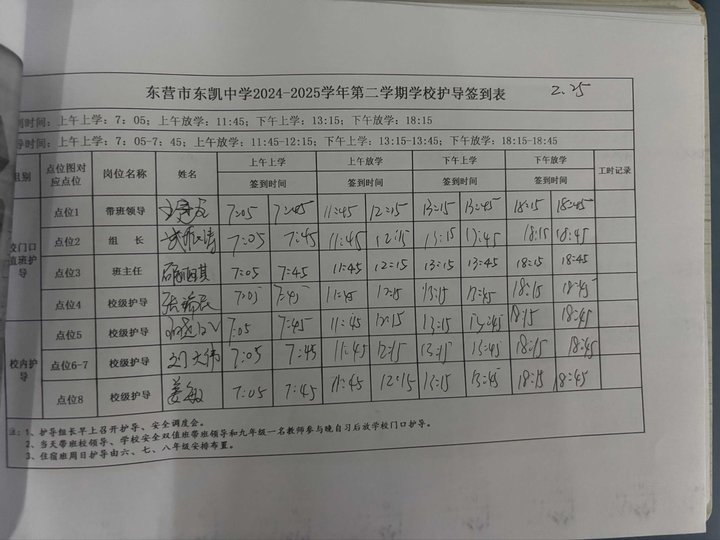 东营市东凯中学2024-2025学年第二学期学校护导签到表 2.25
时间:上午上学:7:05;上午放学:11:45;下午上学:13:15;下午放学:18:15
时间:上午上学:7:05-7:45;上午放学:11:45-12:15;下午上学:13:15-13:45;下午放学:18:15-18:45
组别 点位图对应点位 岗位名称 姓名 上午上学 上午放学 下午上学 下午放学 工时记录
签到时间 签到时间 签到时间 签到时间
校门口值班护导
点位1 带班领导 7:05 7:45 11:45 12:15 13:15 13:45 18:15 18:45
点位2 组 长 7:05 7:45 11:45 12:15 13:15 13:45 18:15 18:45
点位3 班主任 7:05 7:45 11:45 12:15 13:15 13:45 18:15 18:45
点位4 校级护导 7:05 7:45 11:45 12:15 13:15 13:45 18:15 18:45
校内护导
点位5 校级护导 7:05 7:45 11:45 12:15 13:15 13:45 18:15 18:45
点位6-7 校级护导 7:05 7:45 11:45 12:15 13:15 13:45 18:15 18:45
点位8 校级护导 姜敏 7:05 7:45 11:45 12:15 13:15 13:45 18:15 18:45
注:1、护导组长早上召开护导、安全调度会。
2、当天带班校领导、学校安全双值班带班领导和九年级一名教师参与晚自习后放学校门口护导。
3、住宿班周日护导由六、七、八年级安排布置。